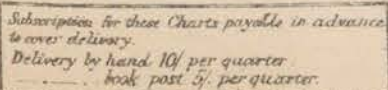 Subscription for these Charts payable in advance
to cover delivery.
Delivery by hand 10/ per quarter
........ book post 5/. per quarter.